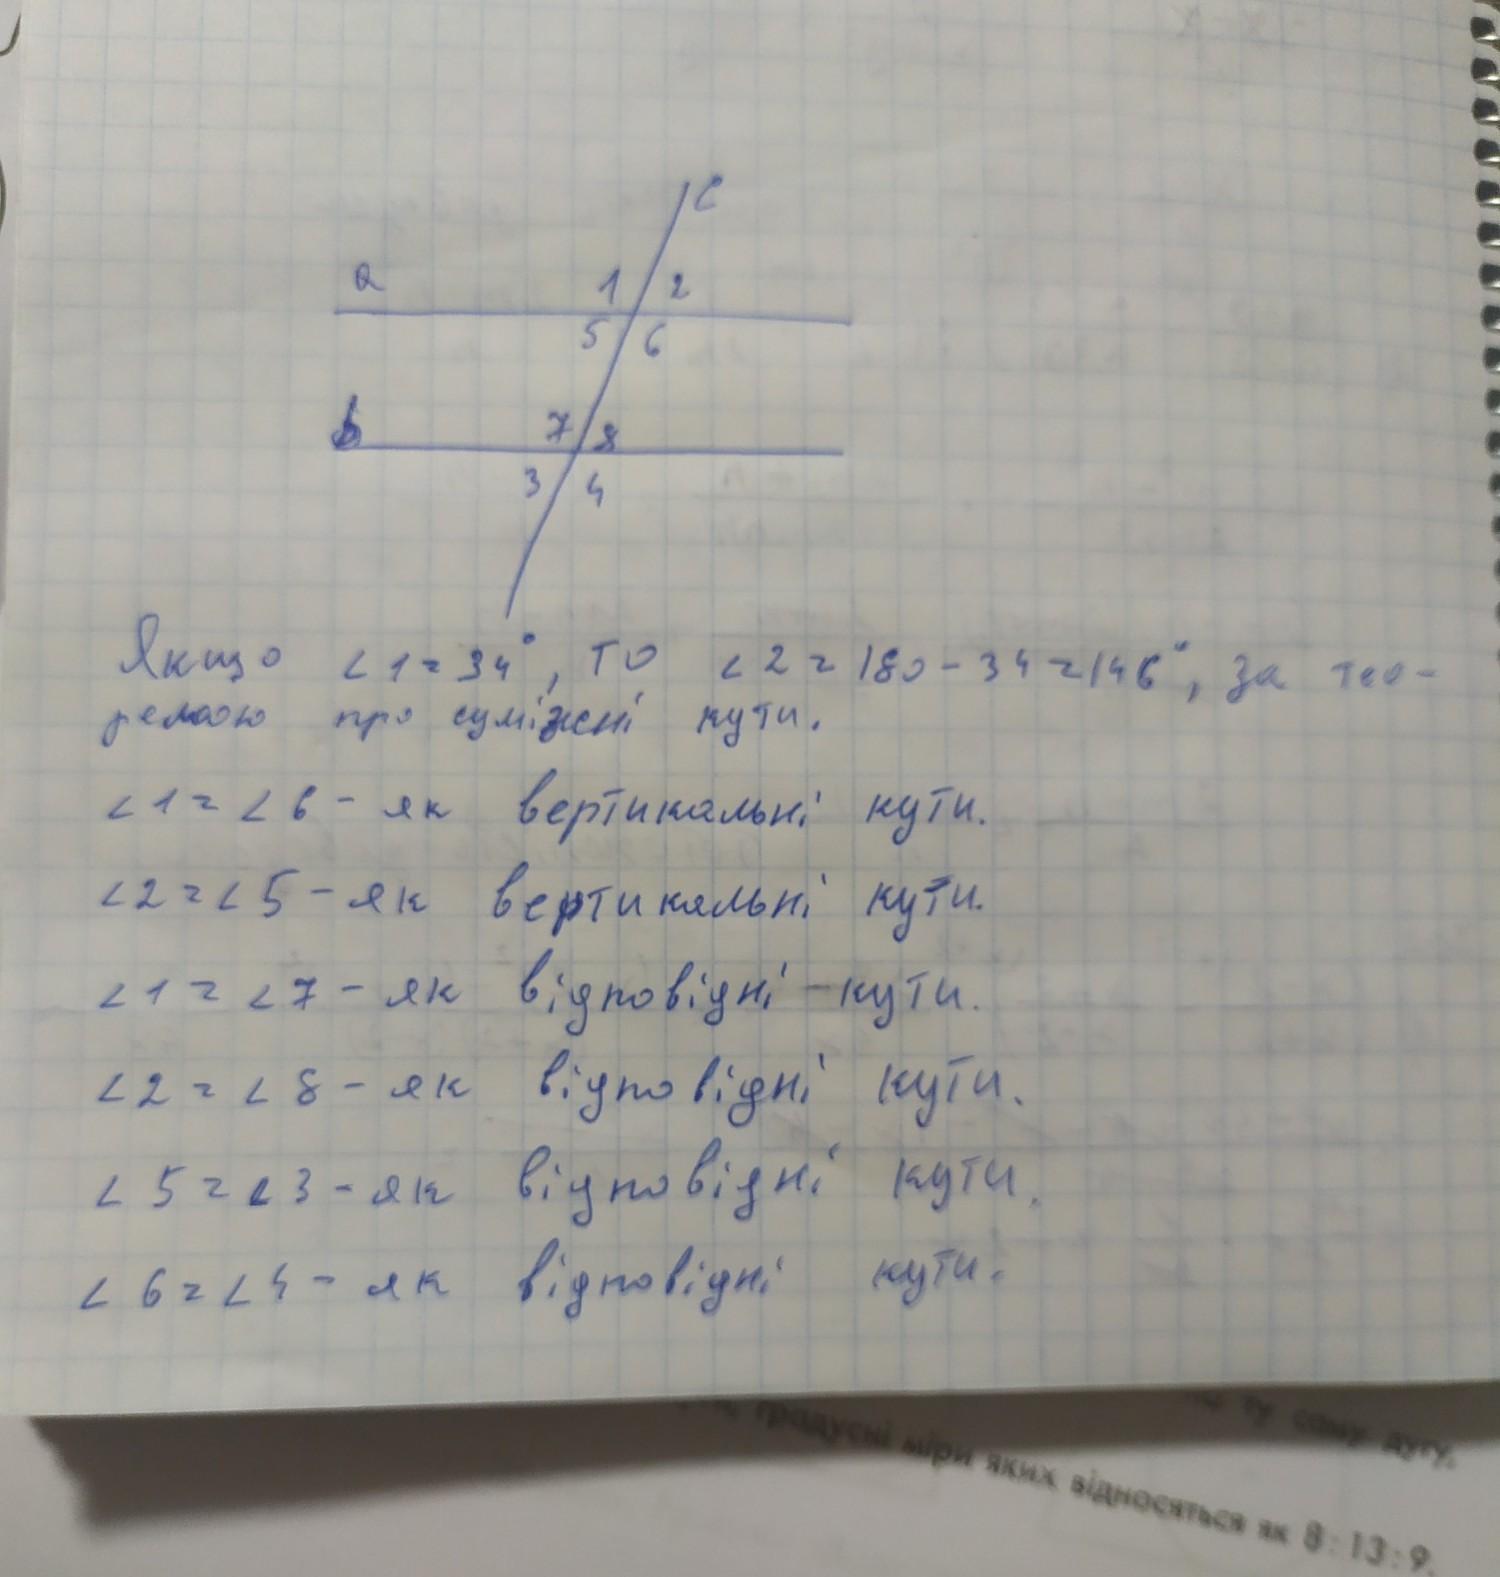 c
a 1 2
5 6
b 7 8
3 4
Якщо ∠1=34°, то ∠2=180-34=146°, за тео-
ремою про суміжні кути.
∠1=∠6 - як вертикальні кути.
∠2=∠5 - як вертикальні кути.
∠1=∠7 - як відповідні кути.
∠2=∠8 - як відповідні кути.
∠5=∠3 - як відповідні кути.
∠6=∠4 - як відповідні кути.
ту саму дугу,
градусні міри яких відносяться як 8:13:9.